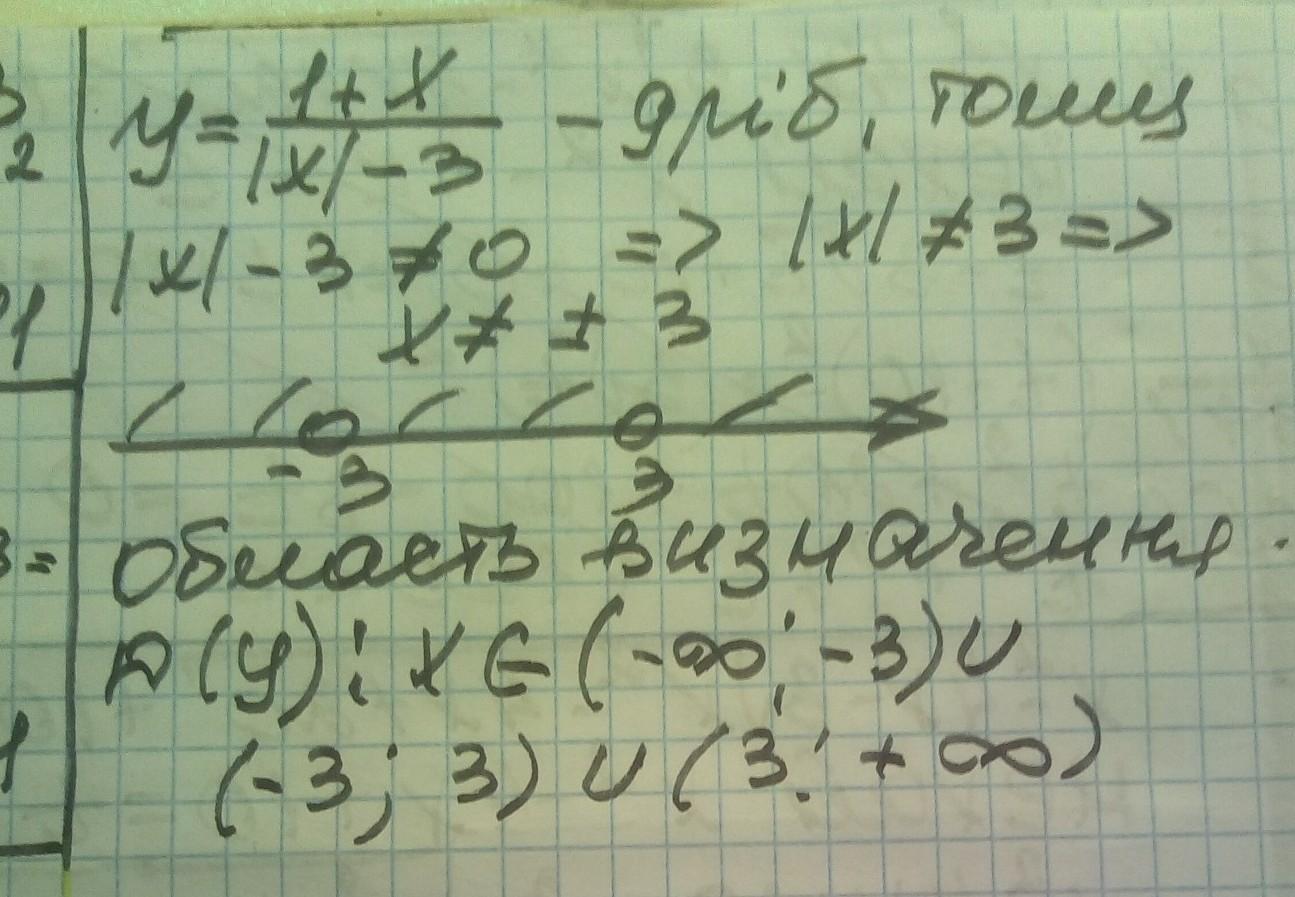 y = (1 + x) / (|x| - 3) - дріб, тому
|x| - 3 ≠ 0 => |x| ≠ 3 =>
x ≠ ± 3
-3 3
Область визначення.
D(y): x ∈ (-∞; -3) ∪
(-3; 3) ∪ (3; +∞)
2
1
3=
1